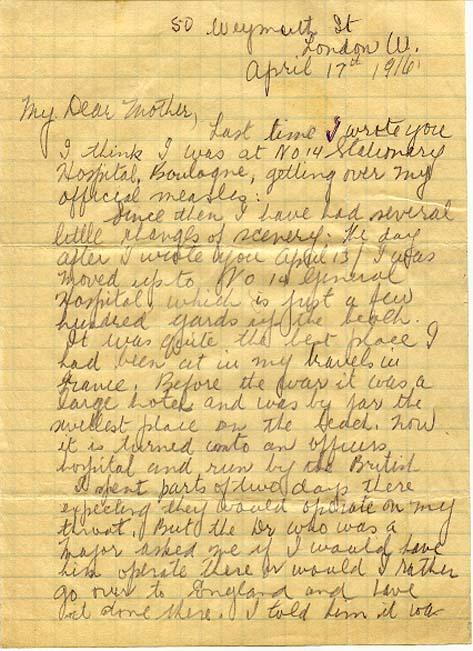 50 Weymouth St
London W.
April 17th 1916
My Dear Mother,
Last time I wrote you
I think I was at No 14 Stationary
Hospital, Boulogne, getting over my
official measles.
Since then I have had several
little changes of scenery. The day
after I wrote you April 13/ I was
moved up to No 14 General
Hospital which is just a few
hundred yards up the beach.
It was quite the best place I
had been at in my travels in
France. Before the war it was a
large hotel and was by far the
swellest place on the beach. Now
it is turned into an officers
hospital and run by the British
I spent parts of two days there
expecting they would operate on my
throat. But the Dr who was a
Major asked me if I would have
him operate there or would I rather
go over to England and have
it done there. I told him it wa